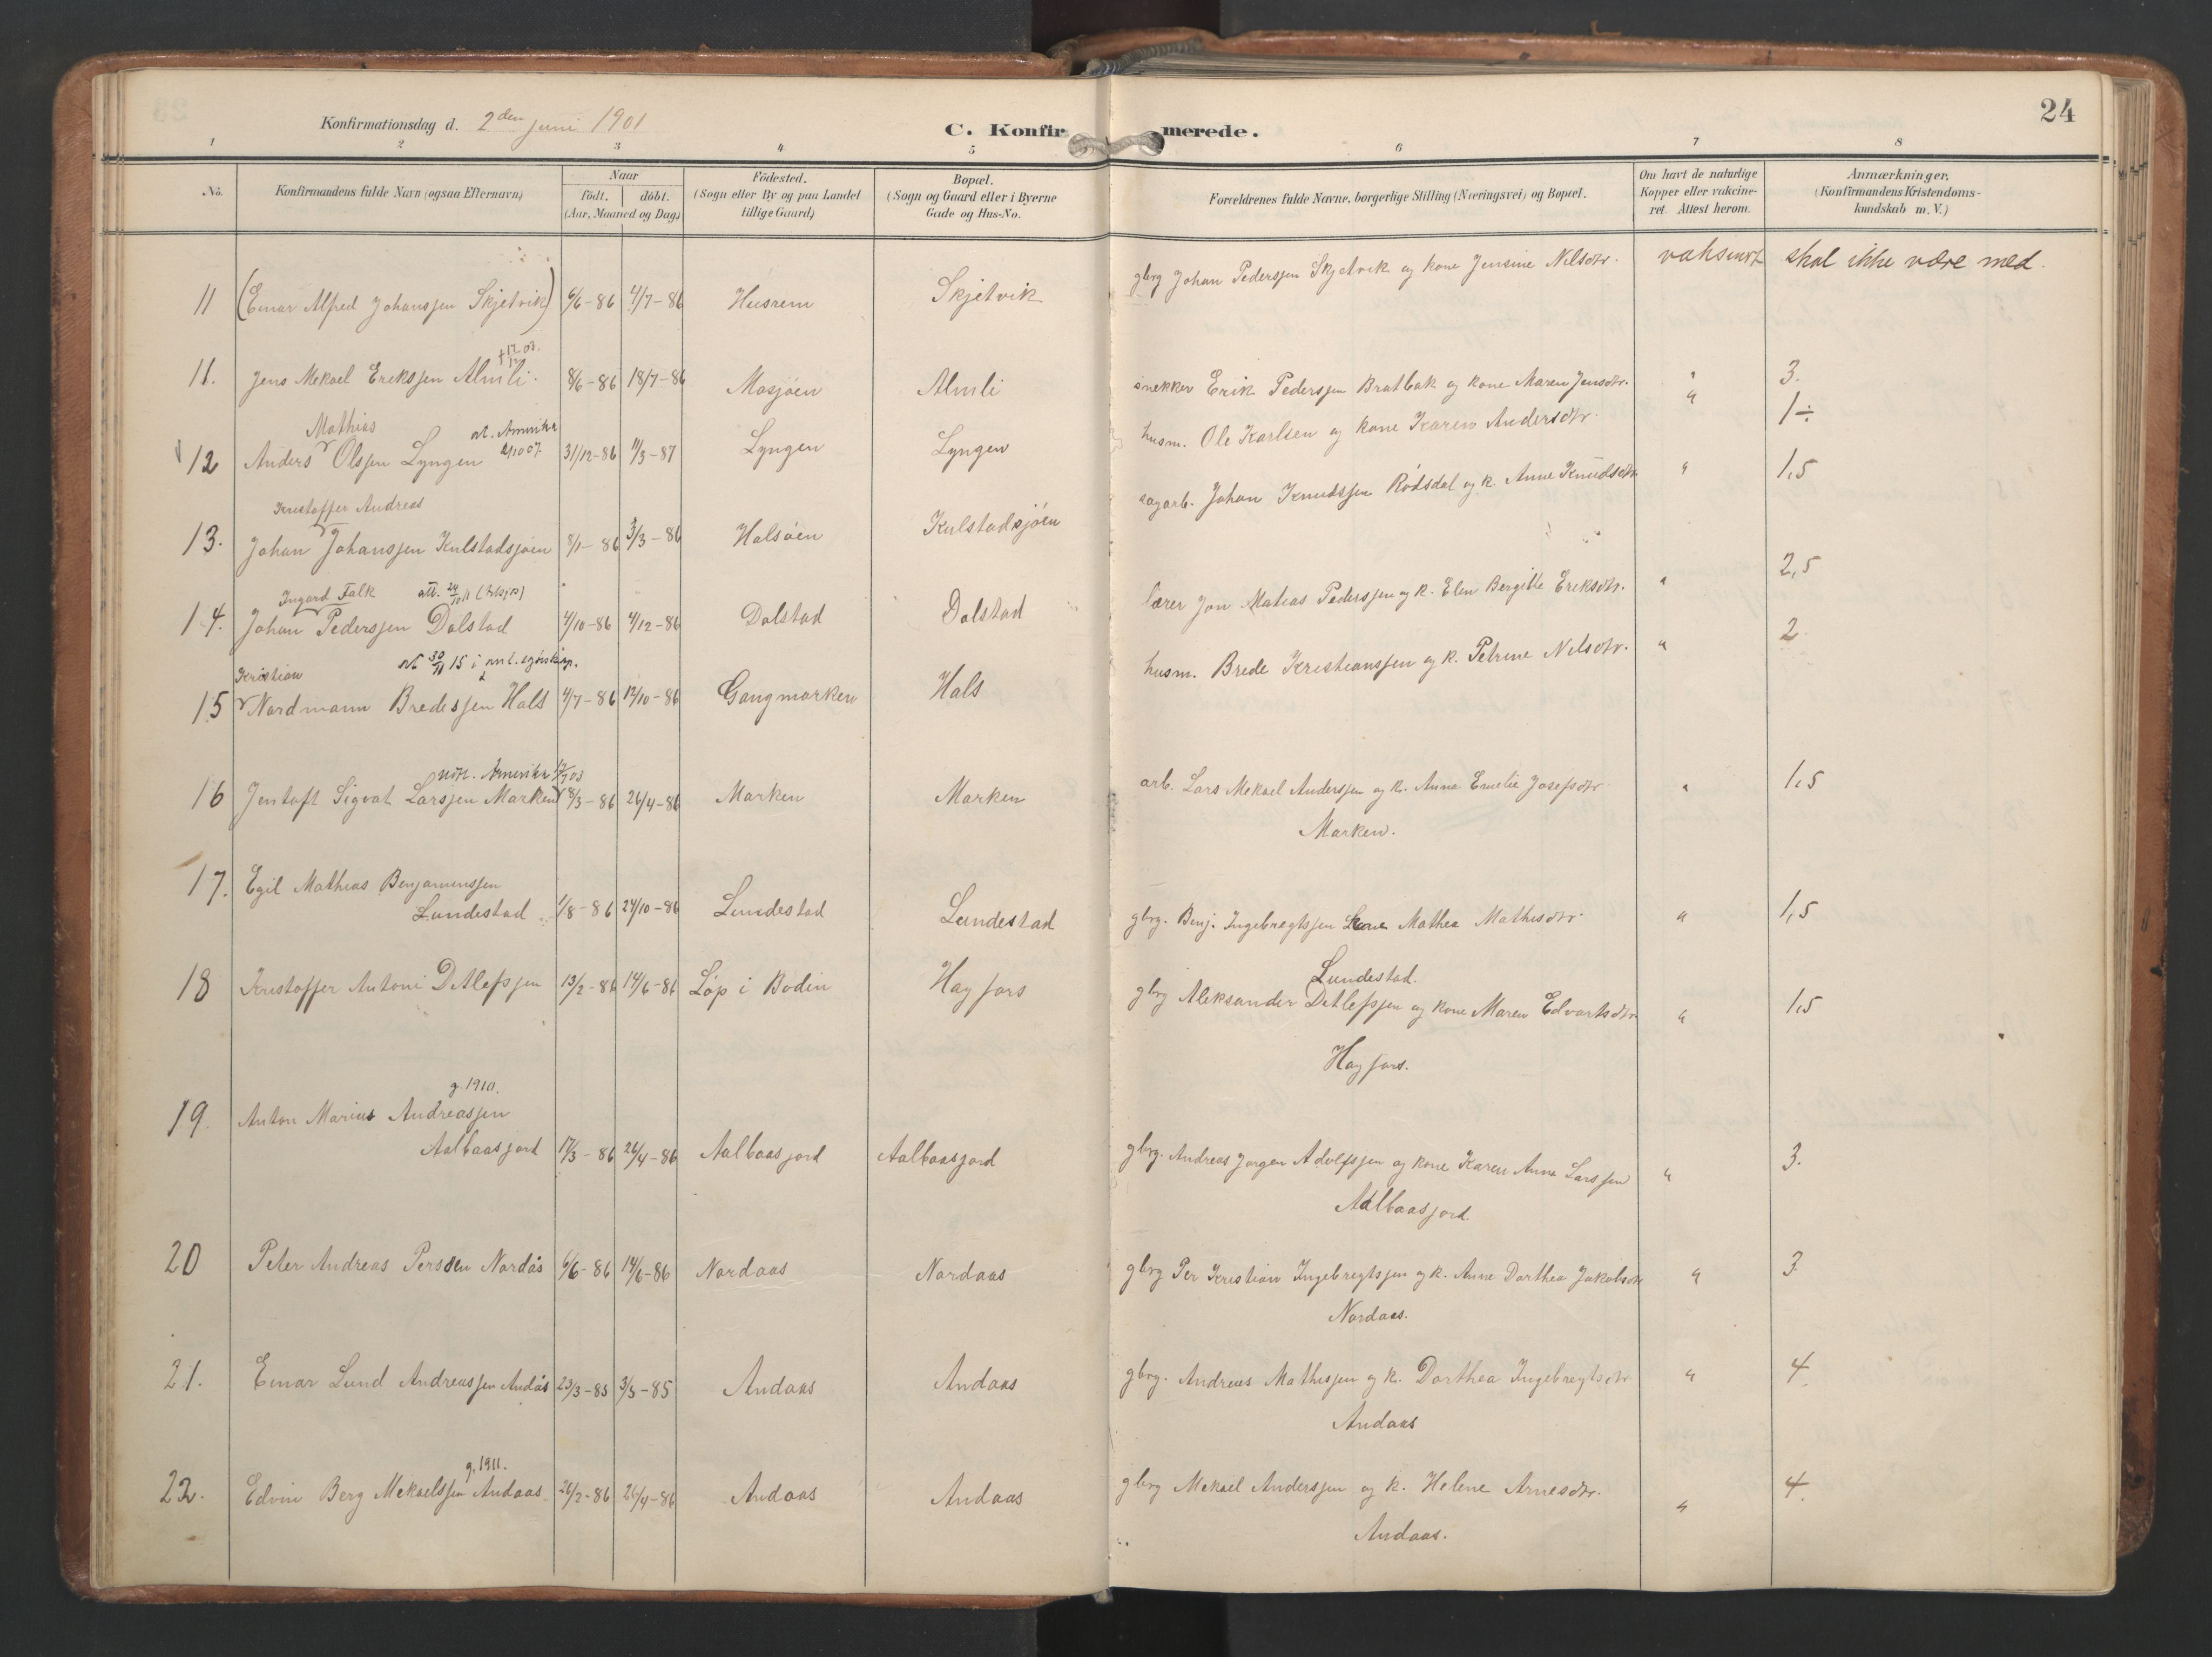 24
Konfirmationsdag d. 2den juni 1901
C. Konfirmerede.
1 2 3 4 5 6 7 8
No.
Konfirmandens fulde Navn (ogsaa Efternavn)
Naar
födt. döbt.
(Aar, Maaned og Dag)
Födested.
(Sogn eller By og paa Landet
tillige Gaard)
Bopæl.
(Sogn og Gaard eller i Byerne
Gade og Hus-No.
Forældrenes fulde Navne, borgerlige Stilling (Næringsvei) og Bopæl.
Om havt de naturlige
Kopper eller vakcine-
ret. Attest herom.
Anmærkninger.
(Konfirmandens Kristendoms-
kundskab m. V.)
11 (Einar Alfred Johanssen Skjetvik) 6/6-86 4/7-86 Husrem Skjetvik gbrg Johan Pederssen Skjetvik og kone Jensine Nilsdtr. skal ikke være med.
11. Jens Mekael Erikssen Almli. 8/6-86 18/7-86 Mosjöen Almli snekker Erik Pederssen Bratbak og kone Maren Jensdtr. " 3.
Mathias
ut. Amerika
12 Anders Olssen Lyngen 31/12-86 11/3-87 Lyngen Lyngen husm. Ole Karlsen og kone Karen Andersdtr. " 1÷
Kristoffer Andreas
13. Johan Johanssen Kulstadsjöen 8/1-86 3/3-86 Halsöen Kulstadsjöen sagarb. Johan Knudssen Rödsdal og k. Anne Knudsdtr " 1,5
Ingard Falk
14. Johan Pederssen Dolstad 4/10-86 4/12-86 Dolstad Dolstad lærer Jon Matias Pederssen og k. Elen Bergitte Eriksdtr. " 2,5
Kristian
15 Nordmann Bredessen Hals 4/7-86 12/10-86 Gangmarken Hals husm. Brede Kristianssen og k. Petrine Nilsdtr. " 2
Amerika
16 Jentoft Sigvat Larssen Marken 8/3-86 26/4-86 Marken Marken arb. Lars Mekael Anderssen og k. Anna Emelie Josefsdtr " 1,5
Marken.
17. Egil Mathias Benjaminssen
Lundestad 1/8-86 24/10-86 Lundestad Lundestad gbrg. Benj. Ingebregtssen kone Mathea Mathisdtr. " 1,5
Lundestad.
18 Kristoffer Antoni Detlefssen 13/2-86 14/6-86 Löp i Bodin Hagfors gbrg Aleksander Detlefssen og kone Maren Edvartsdtr " 1,5
Hagfors.
g. 1910.
19. Anton Marius Andreassen
Aalbaasjord 17/3-86 26/4-86 Aalbaasjord Aalbaasjord gbrg. Andreas Jorgen Adolfssen og kone Karen Anna Larssen " 3.
Aalbaasjord.
20 Peter Andreas Perssen Nordås 6/6-86 14/6-86 Nordaas Nordaas gbrg Per Kristian Ingebregtssen og k. Anne Dorthea Jakobsdtr " 3.
Nordaas.
21. Einar Lund Andreassen Andås 23/3-85 3/5-85 Andaas Andaas gbrg. Andreas Mathissen og k. Dorthea Ingebregtsdtr " 4.
Andaas
g. 1911.
22. Edvin Berg Mekaelssen Andaas 26/2-86 26/4-86 Andaas Andaas gbrg Mekael Anderssen og k. Helene Arnesdtr. " 4.
Andaas.